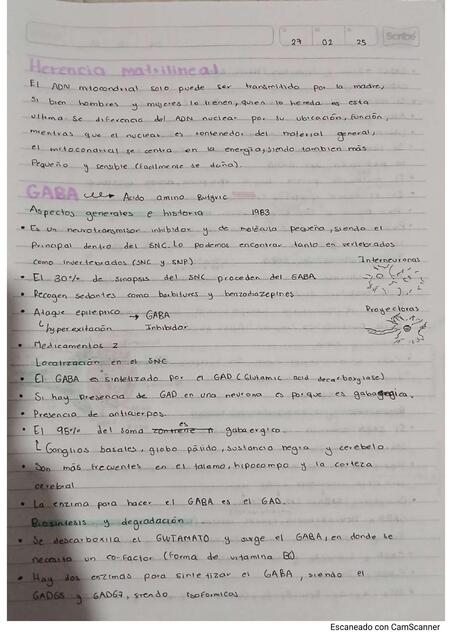 27 02 25 Scribe
Herencia matrilineal
El ADN mitocondrial solo puede ser transmitido por la madre,
Si bien hombres y mujeres lo tienen, quien lo hereda es esta
ultima se diferencia del ADN nuclear por su ubicación, función,
mientras que el nuclear es contenedor del material general,
el mitocondrial se centra en la energia, siendo tambien más
Pequeño y sensible (facilmente se daña).
GABA → Acido amino Butyric
Aspectos generales e historia 1983
• Es un neurotransmisor inhibidor y de molécula pequeña, siendo el
Principal dentro del SNC. Lo podemos encontrar tanto en vertebrados
como invertebrados (SNC y SNP)
Interneuronas
• El 30% de sinapsis del SNC proceden del GABA
• Recogen sedantes como barbitures y benzodiazepines
Proyectoras
• Ataque epileptico → GABA
hyperexitación Inhibidor
• Medicamentos 2
Localización en el SNC
• El GABA es sintetizado por el GAD (Glutamic acid decarboxylase)
• Si hay presencia de GAD en una neurona es porque es gabaegica.
• Presencia de anticuerpos.
• El 95% del soma contiene es gabaergico.
Ganglios basales, globo pálido, sustancia negra y cerebelo
• Son más frecuentes en el talamo, hipocampo y la corteza
cerebral
• La enzima para hacer el GABA es el GAD.
Biosintesis y degradación
• Se descarboxila el GLUTAMATO y surge el GABA, en donde se
necesita un co-factor (forma de vitamina B6).
• Hay dos enzimas para sintetizar el GABA, siendo el
GAD65 y GAD67, siendo isoformicas
Escaneado con CamScanner